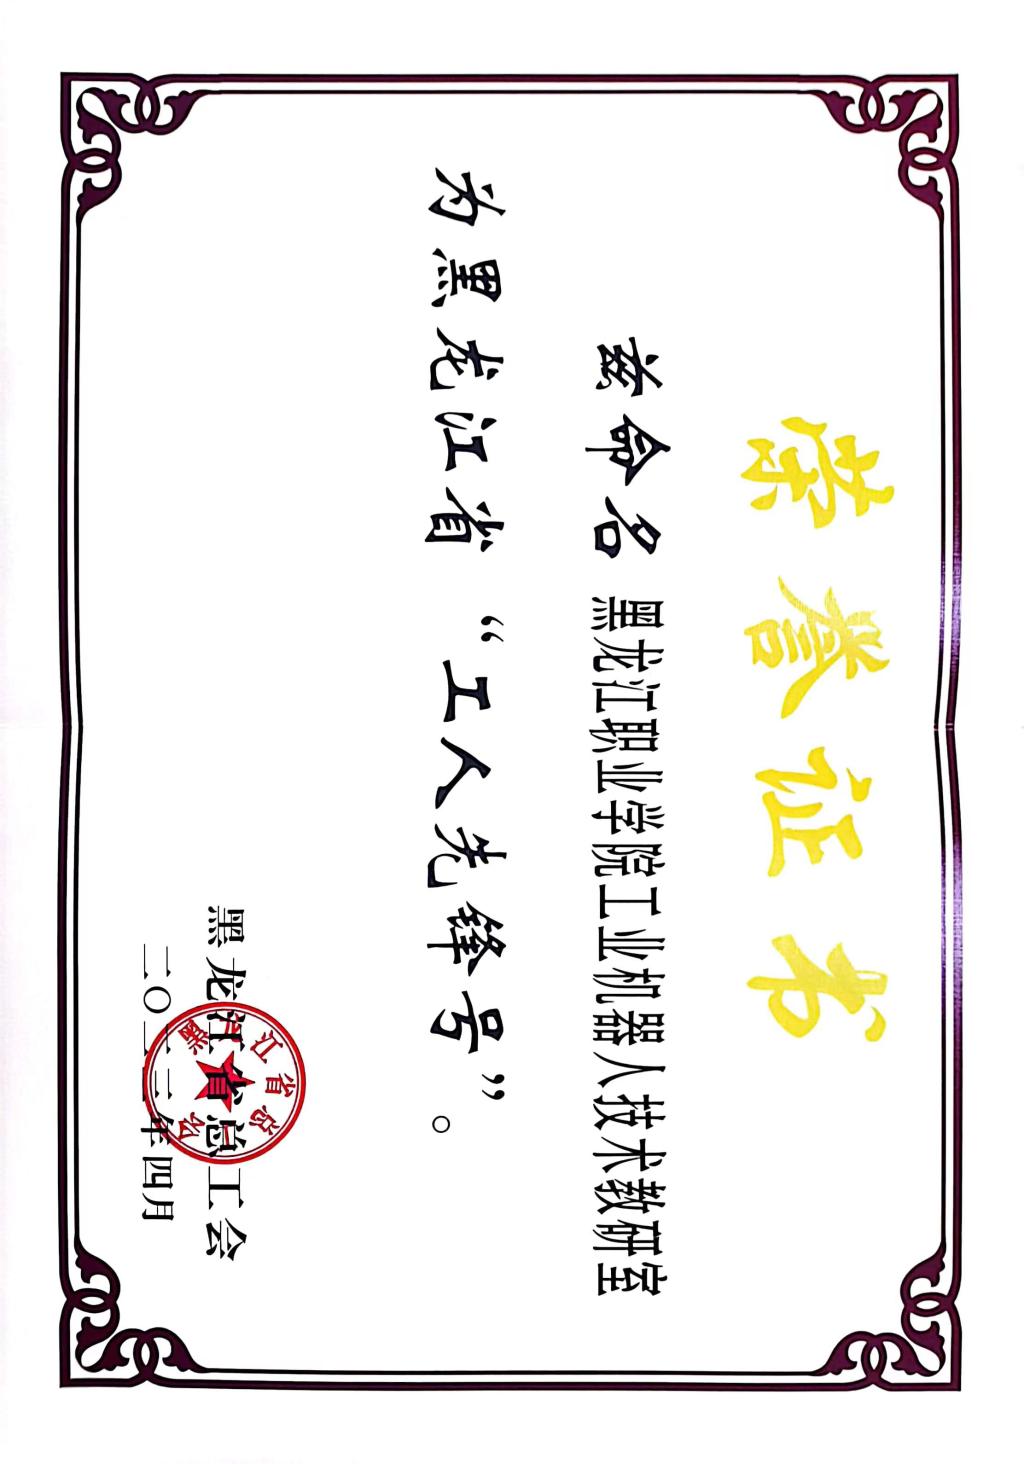 荣誉证书
兹命名 黑龙江职业学院工业机器人技术教研室
为黑龙江省“工人先锋号”。
黑龙江省总工会
二〇二三年四月